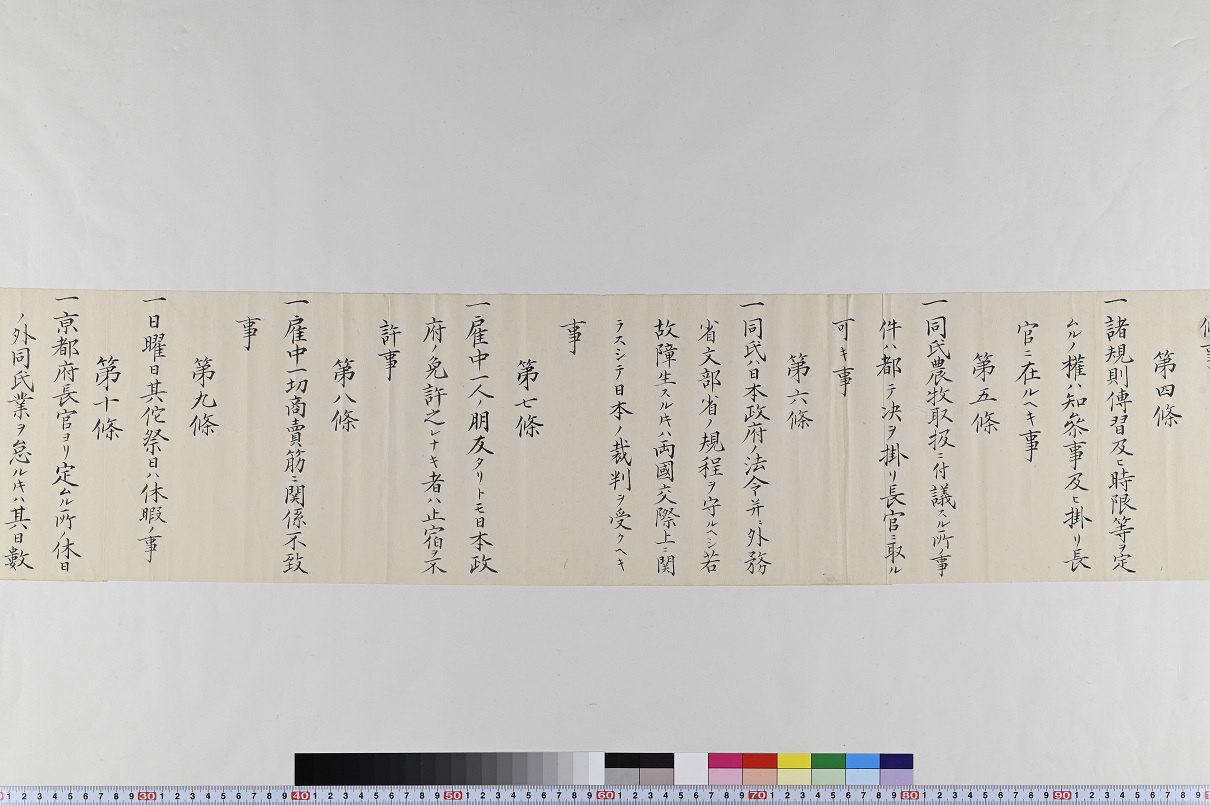 事
第四條
一諸規則傳習及ヒ時限等ヲ定
ムルノ權ハ知参事及ヒ掛リ長
官ニ在ルヘキ事
第五條
一同氏農牧取扱ニ付議スル所ノ事
件ハ都テ决ヲ掛リ長官ニ取ル
可キ事
第六條
一同氏ハ日本政府ノ法令并ニ外務
省文部省ノ規程ヲ守ルヘシ若
故障生スルキハ両國交際上ニ関
ラスシテ日本ノ裁判ヲ受クヘキ
事
第七條
一雇中一人ノ朋友タリトモ日本政
府ノ免許之レナキ者ハ止宿ヲ不
許事
第八條
一雇中一切商賣筋ニ関係不致
事
第九條
一日曜日其佗祭日ハ休暇ノ事
第十條
一京都府長官ヨリ定ムル所ノ休日
ノ外同氏業ヲ怠ルキハ其日數